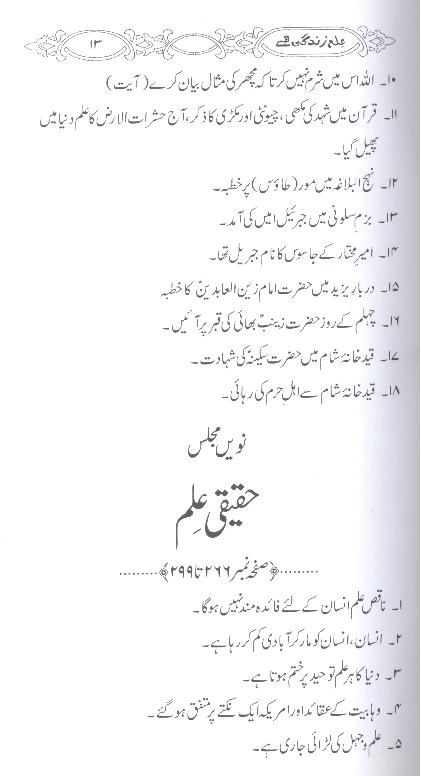 علم زندگی ہے
۱۳
۱۰۔ اللہ اس میں شرم نہیں کرتا کہ مچھر کی مثال بیان کرے (آیت)
۱۱۔ قرآن میں شہد کی مکھی، چیونٹی اور مکڑی کا ذکر، آج حشرات الارض کا علم دنیا میں
پھیل گیا۔
۱۲۔ نہج البلاغہ میں مور (طاؤس) پر خطبہ۔
۱۳۔ بزمِ سلونی میں جبرئیل امیں کی آمد۔
۱۴۔ امیر مختار کے جاسوس کا نام جبریل تھا۔
۱۵۔ دربارِ یزید میں حضرت امام زین العابدینؑ کا خطبہ
۱۶۔ چہلم کے روز حضرت زینبؑ بھائی کی قبر پر آئیں۔
۱۷۔ قید خانۂ شام میں حضرت سکینہؑ کی شہادت۔
۱۸۔ قید خانۂ شام سے اہلِ حرم کی رہائی۔
نویں مجلس
حقیقی علم
.........﴿صفحہ نمبر ۲۶۶ تا ۲۹۹﴾.........
۱۔ ناقص علم انسان کے لئے فائدہ مند نہیں ہوگا۔
۲۔ انسان، انسان کو مار کر آبادی کم کر رہا ہے۔
۳۔ دنیا کا ہر علم توحید پر ختم ہوتا ہے۔
۴۔ وہابیت کے عقائد اور امریکہ ایک نکتے پر متفق ہوگئے۔
۵۔ علم و جہل کی لڑائی جاری ہے۔